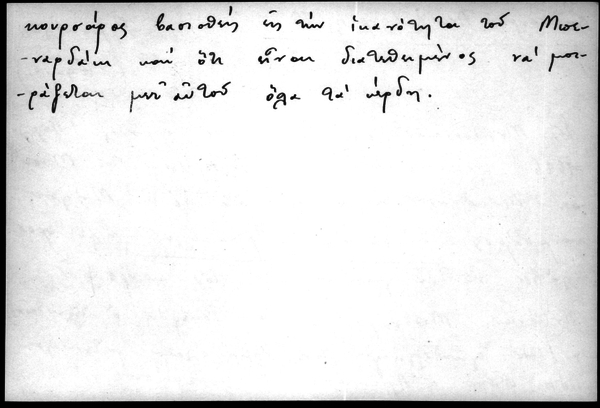 κουρσάρος βασισθείς εἰς τήν ἱκανότητα τοῦ Μπε-
-ναρδάκη καί ὅτι εἶναι διατεθειμένος νά μοι-
-ράζεται μετ' αὐτοῦ ὅλα τά κέρδη.